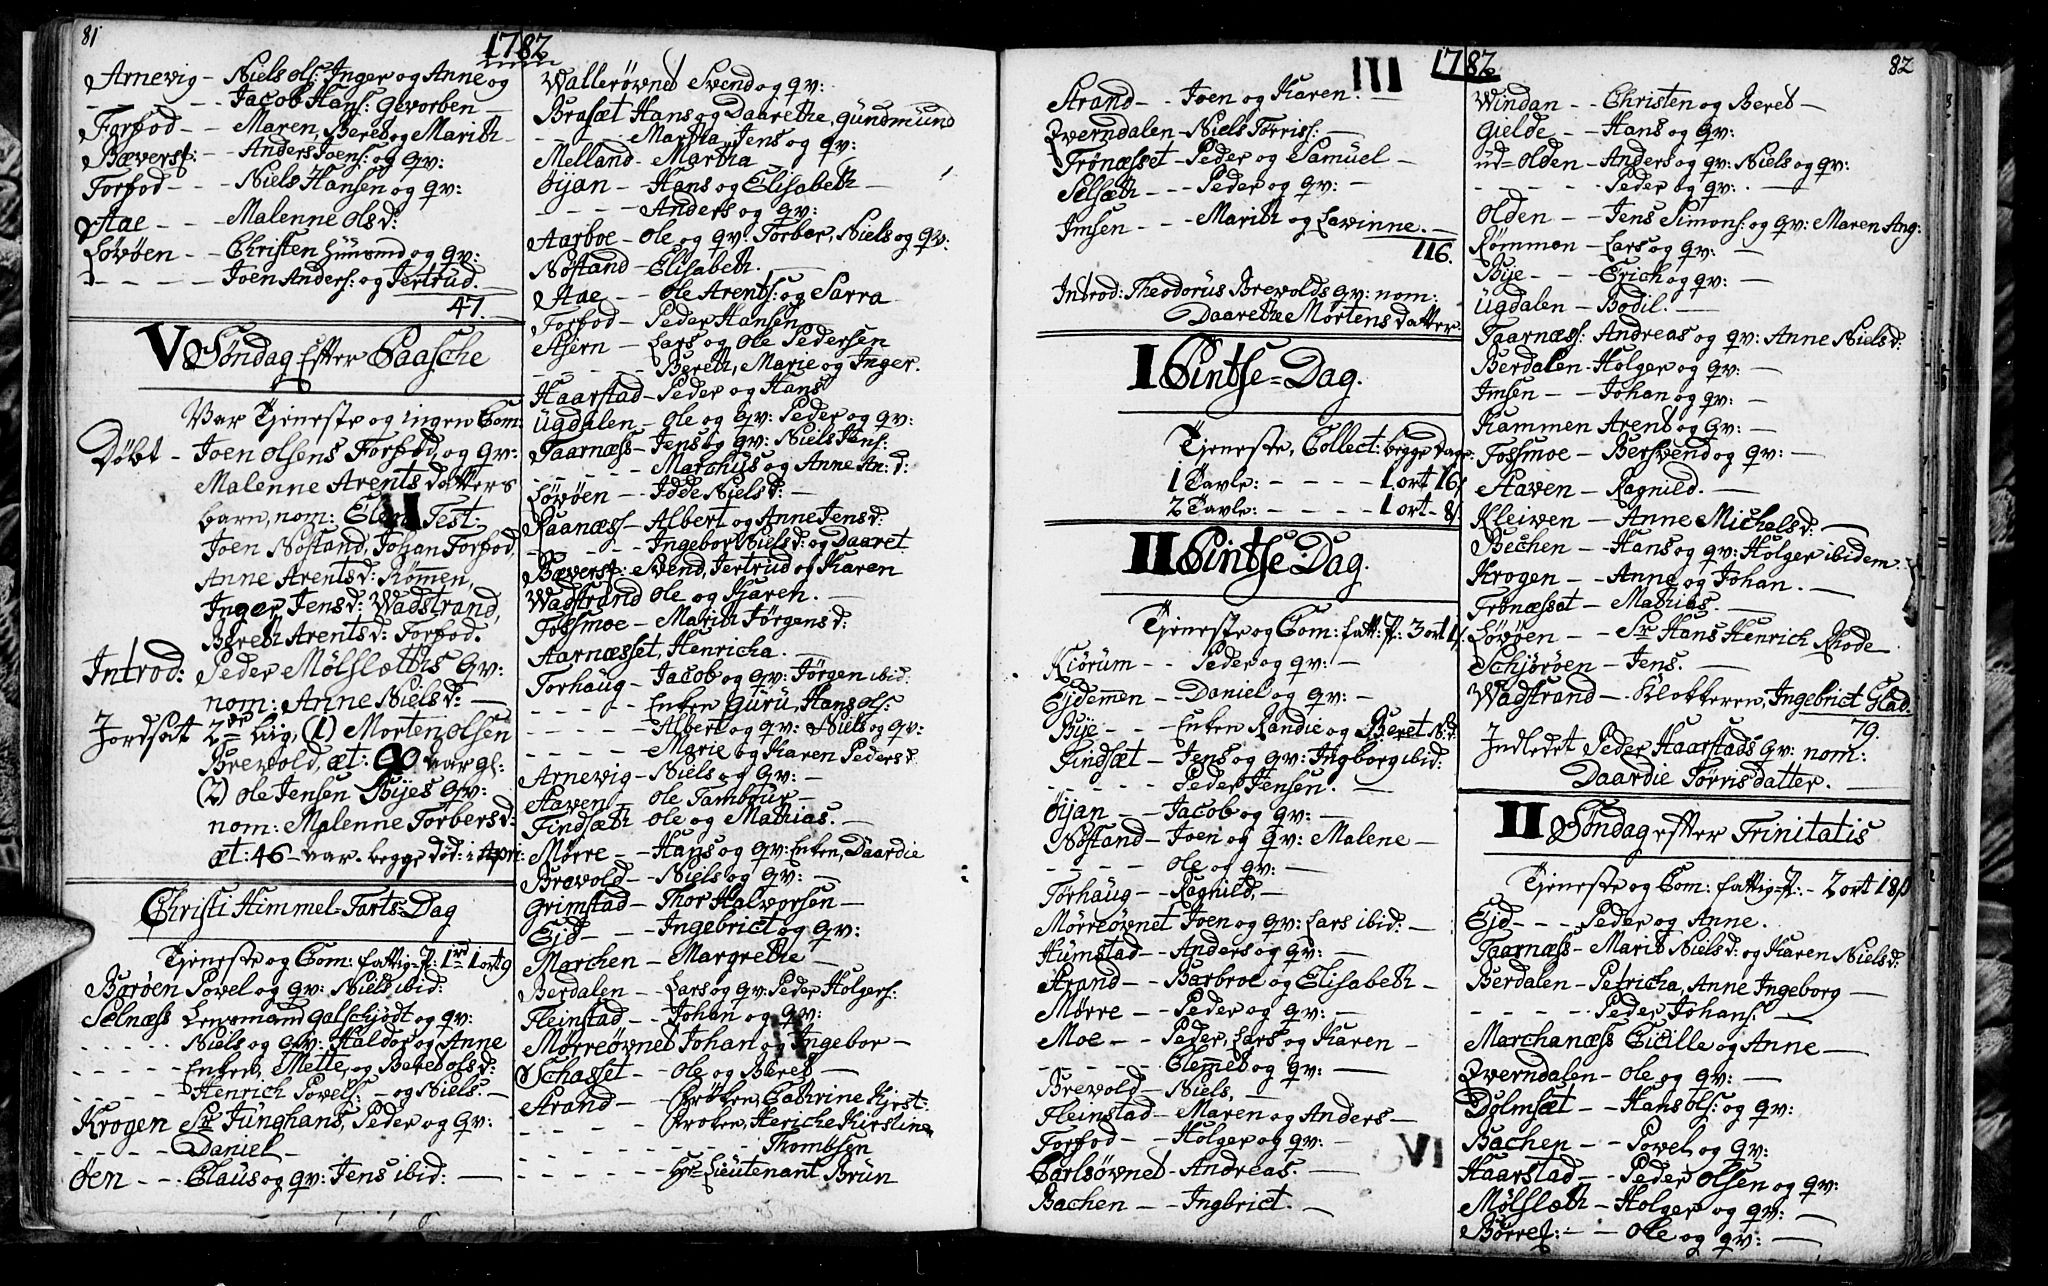 81
1782
Arnevig - Niels Ols: Inger og Anne og
- - - Jacob Hans: Gevorben -
Forfod - - Maren, Beret og Marith -
Bæverf: - Anders Joens: og qv:
Forfod - - - Niels Hansen og qv:
Aae - - - Malenne Olsd:
Løvøen - - Christen Gunmd og qv:
- - - - - Joen Anders: og Jertrud.
47.
V Søndag Efter Paasche
Var Tjeneste og ingen Com:
Døbt - Joen Olsens Forfod, og qv:
Malenne Arents datters
barn, nom: Elen Test:
Joen Nøstand, Johan Forfod,
Anne Arentsd: Rømen,
Inger Jensd: Wadstrand,
Bereth Arentsd: Forfod.
Introd: Peder Mølslæths qv:
nom: Anne Nielsd: -
Jordsat 2de Liig, (1) Morten Olsen
Brevold, æt: 90 var gl:
(2) Ole Jensen Byes qv:
nom: Malenne Torbersd:
æt: 46 - var. begge død: i Apri:
Christi Himmel-Farts-Dag
Tjeneste og Com: fattig-P: 1rd 1 ort 9
Barøen Povel og qv: Niels ibid:
Selnæss Lensmand Galschjødt og qv:
- - - - - Niels og qv: Haldor og Anne
- - - - - Enken, Mette, og Beret Olsd:
- - - - - Henrich Povels: - og Niels. -
Krogen Sr Junghans, Peder og qv:
- - - - - Daniel -
Øen - - - Claus og qv: Jens ibid: -
Wallerøvnet Svend og qv:
Brasæt Hans og Daarethe, Gundmund
- - - - Martha, Jens og qv:
Melland - Martha
Øijan - - Hans og Elisabeth -
- - - - - Anders og qv:
Aarboe - Ole og qv: Torber, Niels og qv:
Nøstand - Elisabeth. -
Aae - - Ole Arents: og Sarra
Forfod - Peder Hansen
Asern - Lars og Ole Pedersen
- - - - - Bereth, Marie og Inger.
Haarstad - Peder og Hans
Ugdalen - Ole og qv: Peder og qv:
Taarnæss - Jens og qv: Niels Jens:
- - - - - Marchus og Anne An: d:
Løvøen - - Idde Nielsd: -
Raanæss - Albert og Anne Jensd:
- - - - - Ingebor Nielsd: og Daaret
Bæverf: - Svend, Jertrud og Karen
Wadstrand Ole og Karen. -
Fossmoe - Marith Jørgensd:
Aarnæsset, Henricha. -
Torhaug - Jacob og qv: Jørgen ibid:
- - - - - Enken Guru, Hans Ols:
- - - - - Albert og qv: Niels og qv:
- - - - - Marie og Karen Pedersd:
Arnevig - Niels og qv: -
Staven - Ole Tambour -
Findsæth Ole og Mathias. -
Mørre - - Hans og qv: Enken, Daardie
Brevold - Niels og qv: -
Grimstad - Thor Halvorsen -
Ejd - - - Ingebrict og qv:
Marchen - Margrethe -
Berdalen - Lars og qv: Peder Holgers:
Fleinstad - Johan og qv:
Mørreøvnet Johan og Ingebor -
Schasset - Ole og Beret -
Strand - - Frøken, Cathrine Kjerst:
- - - - - Frøken, Heriche Kirstine
- - - - - Thombsen
- - - - - Hr Lieutenant Brun
III
1782
82
Strand - - Joen og Karen. -
Qverndalen - Niels Torris: -
Trønæsset - Peder og Samuel -
Selsæth - - - Peder og qv: -
Imsen - - - Marith og Lavinne. -
116.
Introd: Theodorus Brevolds qv: nom:
Daarethe Mortens datter.
I Pintse-Dag.
Tjeneste, Collect: begge Dage:
1 Tavle: - - - - 1 ort 16ß
2 Tavle: - - - - 1 ort - 8ß
II Pintse-Dag.
Tjeneste og Com: fatt: P: 3 ort 1ß
Kiørum - - Peder og qv: -
Ejdemen - Daniel og qv: -
Bye - - - Enken Randie og Beret N:d:
Findsæt - Jens og qv: Ingborg ibid:
- - - - - Peder Jensen. -
Øijan - - Jacob og qv: -
Nøstand - Joen og qv: Malene -
- - - Ole og qv: -
Torhaug - - Ragnild, -
Mørreøvnet Joen og qv: Lars ibid: -
Humstad - Anders og qv: -
Strand - - Barbroe og Elisabeth -
Mørre - - - Peder og qv: -
Moe - - - Peder, Lars og Karen -
- - - - - Clemet og qv: -
Brevold - Niels, -
Fleinstad - Maren og Anders -
Forfod - - Holger og qv: -
Carlsøvnet - Andreas. -
Bachen - - Ingbrict. -
VI
Windan - - Christen og Beret -
Gielde - - Hans og qv:
ud=Olden - Anders og qv: Niels og qv:
- - - - - Peder og qv: -
Olden - - Jens Simons: og qv: Maren Ang:
Rømmen - Lars og qv: -
Bye - - - Erich og qv: -
Ugdalen - Bodil. -
Taarnæss: Andreas og qv: Anne Nielsd:
Berdalen - Holger og qv: -
Imsen - - Johan og qv: -
Rammen Arent og qv: -
Fossmoe - Bersvend og qv: -
Staven - Ragnild. -
Kleiven - Anne Michelsd: -
Bechen - - Hans og qv: Holger ibidem
Krogen - - Anne og Johan. -
Trønæsset - Mathias. -
Løvøen - - Sr Hans Henrich Rhode
Schjørøen - Jens. -
Wadstrand - Klokkeren, Ingebrict Glad.
79.
Indledet Peder Haarstads qv: nom:
Daardie Torris datter. -
II Søndag efter Trinitatis
Tjeneste og Com: fattig-P: - 2 ort 18ß
Ejd - - - Peder og Anne.
Taarnæss - Marit Nielsd: og Karen Nielsd:
Berdalen - Petricha, Anne Ingeborg -
- - - - - Peder Johans: -
Marchanæss Cicille og Anne -
Qverndalen - Ole og qv: -
Dolmsæt - - Hans Ols: og qv:
Bachen - - Povel og qv:
Haarstad - - Peder Olsen og qv:
Mølslæth - Holger og qv: -
Børref: - - Ole og qv: -